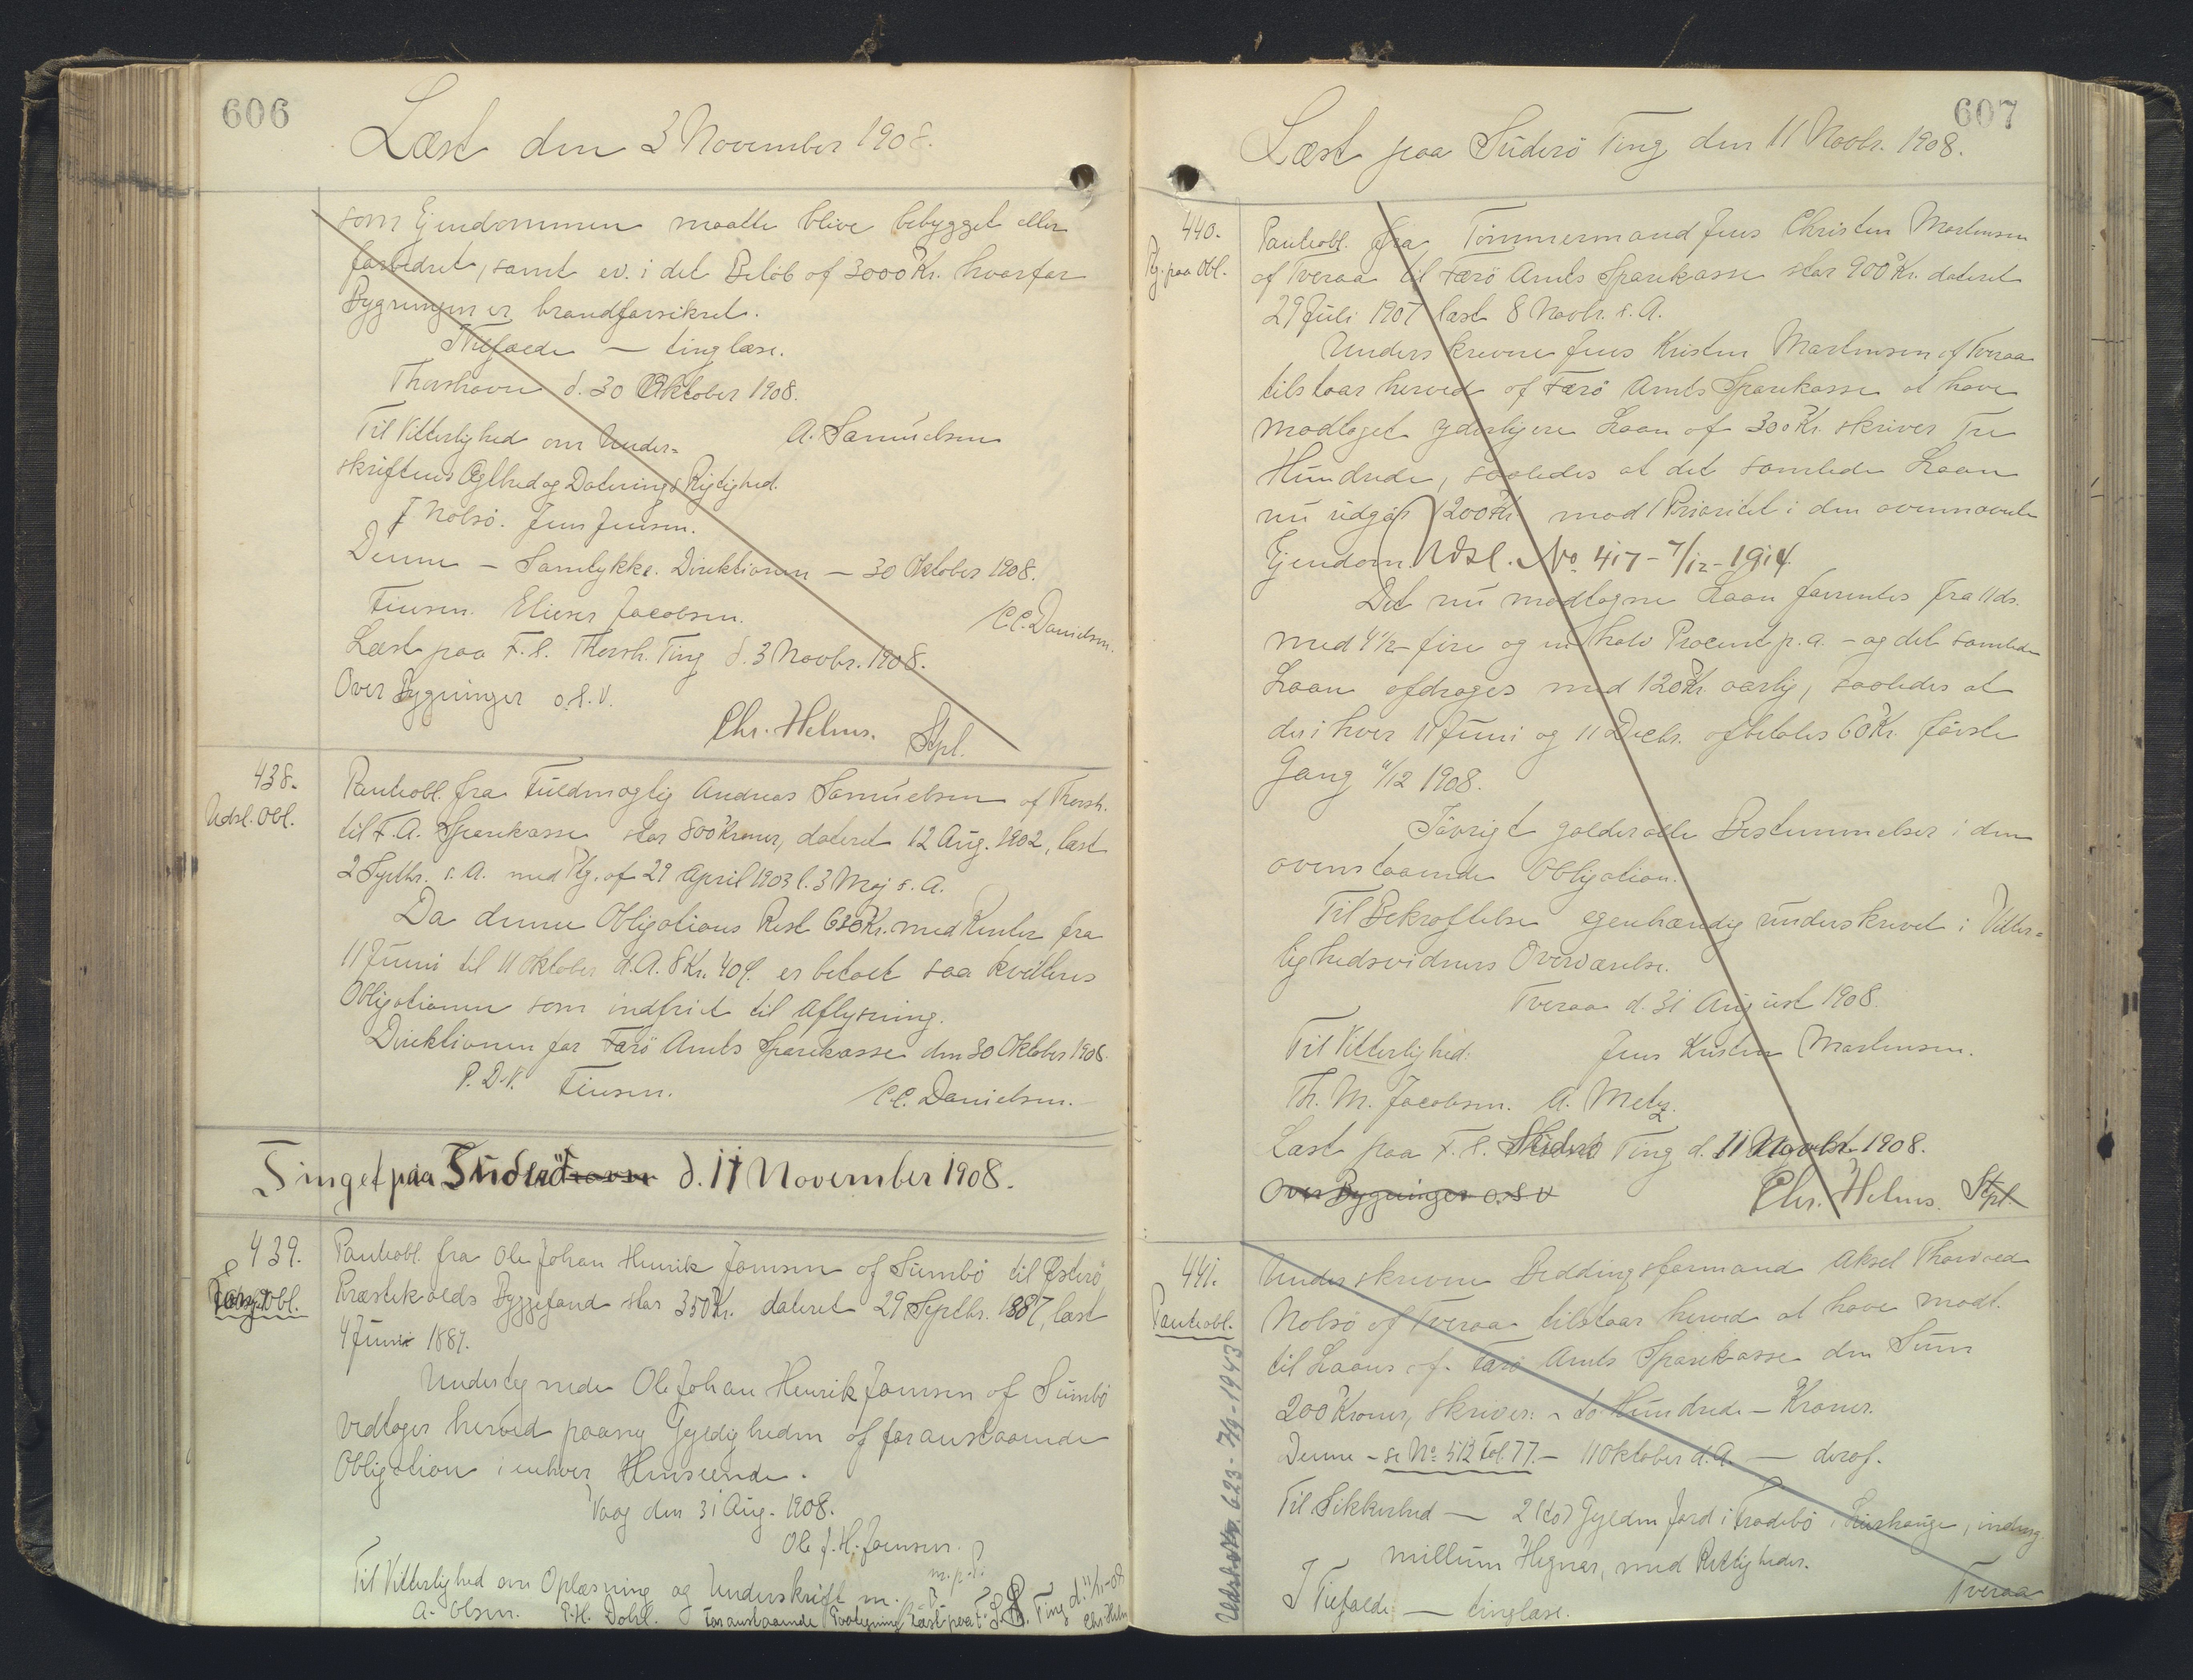 606
Læst den 3 November 1908.
som Ejendommen maatte blive bebygget eller
forbedret, samt ev. i det Beløb af 3000 Kr. hvorfor
Bygningen er brandforsikret.
I Tilfælde — tinglæse.
Thorshavn d. 30 Oktober 1908.
Til Vitterlighed om Under=
A. Samuelsen
skriftens Ægthed og Daterings Rigtighed.
J Nolsö. Jens Jensen.
Denne – Samtykke. Direktionen – 30 Oktober 1908.
Finsen. Elieser Jacobsen.
C.C. Danielsen.
Læst paa F. S. Thorsh. Ting d. 3 Novbr. 1908.
Over Bygninger o.s.v.
Chr. Helms. Stpl.
438.
Udsl. Obl.
Panteobl. fra Fuldmægtig Andreas Samuelsen af Thorsh.
til F. A. Sparekasse stor 800 Kroner, dateret 12 Aug. 1902, læst
2 Septbr. s. A. med Ptg. af 29 April 1903 l. 3 Maj s. A.
Da denne Obligations Rest 630 Kr. med Renter fra
11 Juni til 11 Oktober d. A. 8 Kr. 40 Ø. er betalt saa kvitteres
Obligationen som indfriet til Aflysning.
Direktionen for Færö Amts Sparekasse den 30 Oktober 1908.
P. D. V. Finsen.
C.C. Danielsen.
Tinget paa Suderö d. 11 November 1908.
439.
Obl.
Panteobl. fra Ole Johan Henrik Joensen af Sumbö til Østerö
Præstekalds Byggefond stor 350 Kr. dateret 29 Septbr. 1887, læst
4 Juni 1889.
Undertegnede Ole Johan Henrik Joensen af Sumbö
vedtager herved paany Gyldigheden af foranstaaende
Obligation i enhver Henseende.
Vaag den 31 Aug. 1908.
Ole J. H. Joensen.
m. p. P.
Til Vitterlighed om Oplæsning og Underskrift m.
A. Olsen. P. H. Dahl. Foranstaaende Paategning læst paa F. S. S. Ting d. 11/11-08
Chr Helms
607
Læst paa Suderö Ting den 11 Novbr. 1908.
440.
Ptg. paa Obl.
Panteobl. fra Tömmermand Jens Christen Mortensen
af Tveraa til Færö Amts Sparekasse stor 900 Kr. dateret
29 Juli 1907 læst 8 Novbr. s. A.
Underskrevne Jens Kristen Mortensen af Tveraa
tilstaar herved af Færö Amts Sparekasse at have
modtaget yderligere Laan af 300 Kr. skriver Tre
Hundrede, saaledes at det samlede Laan
nu udgør 1200 Kr. mod 1 Prioritet i den ovennævnte
Ejendom. Udsl. No 417 – 7/12 – 1914
Det nu modtagne Laan forrentes fra 11 ds.
med 4½ – fire og en halv Procent p. a. – og det samlede
Laan afdrages med 120 Kr. aarlig, saaledes at
der i hver 11 Juni og 11 Decbr. afbetales 60 Kr. første
Gang 11/12 1908.
Iøvrigt gælder alle Bestemmelser i den
ovenstaaende Obligation.
Til Bekræftelse egenhændig underskrevet i Vitter=
lighedsvidners Overværelse.
Tveraa d. 31 August 1908.
Til Vitterlighed:
Jens Kristen Mortensen.
Th. M. Jacobsen. A. Metz.
Læst paa F. S. Suderö Ting d. 11 Novbr. 1908.
Over Bygninger o.s.v
Chr. Helms. Stpl.
441.
Panteobl.
Udslettet 623 – 7/9 – 1943
Underskrevne Beddingsformand Aksel Thorvald
Nolsö af Tveraa tilstaar herved at have modt.
til Laans af Færö Amts Sparekasse den Sum
200 Kroner, skriver: – to Hundrede – Kroner.
Denne – se No 512 Fol 77. – 11 Oktober d. A. — deraf.
Til Sikkerhed — 2 (to) Gylden Jord i Trodebö i , indhegn.
millum Hegnar, med Rettigheder.
I Tilfælde — tinglæse.
Tveraa